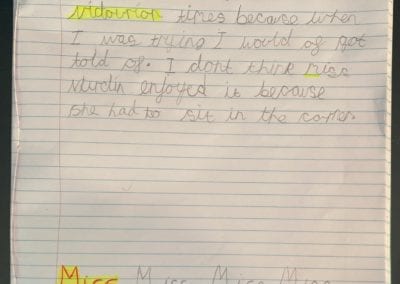 vidourion times because when
I was trying I would of got
told of. I dont think miss
Murdin enjoyed it because
she had to sit in the corner
Miss Miss Miss Miss